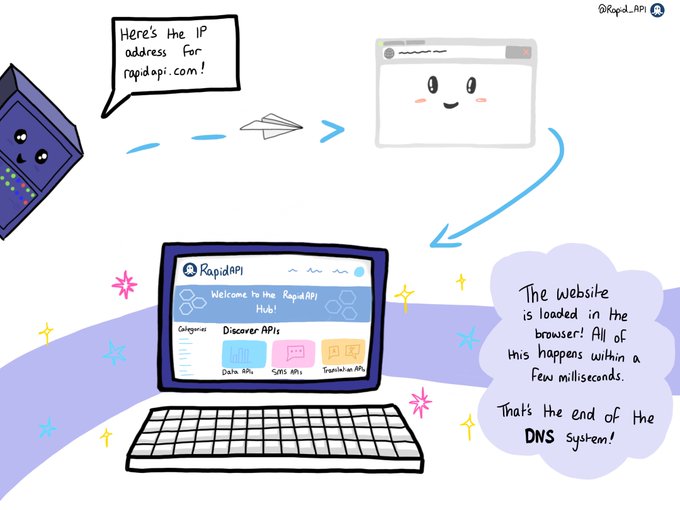 @Rapid_API
Here's the IP
address for
rapidapi.com!
RapidAPI
Welcome to the RapidAPI
Hub!
Categories
Discover APIs
Data APIs
SMS APIs
Translation APIs
The website
is loaded in the
browser! All of
this happens within a
few milliseconds.
That's the end of the
DNS system!